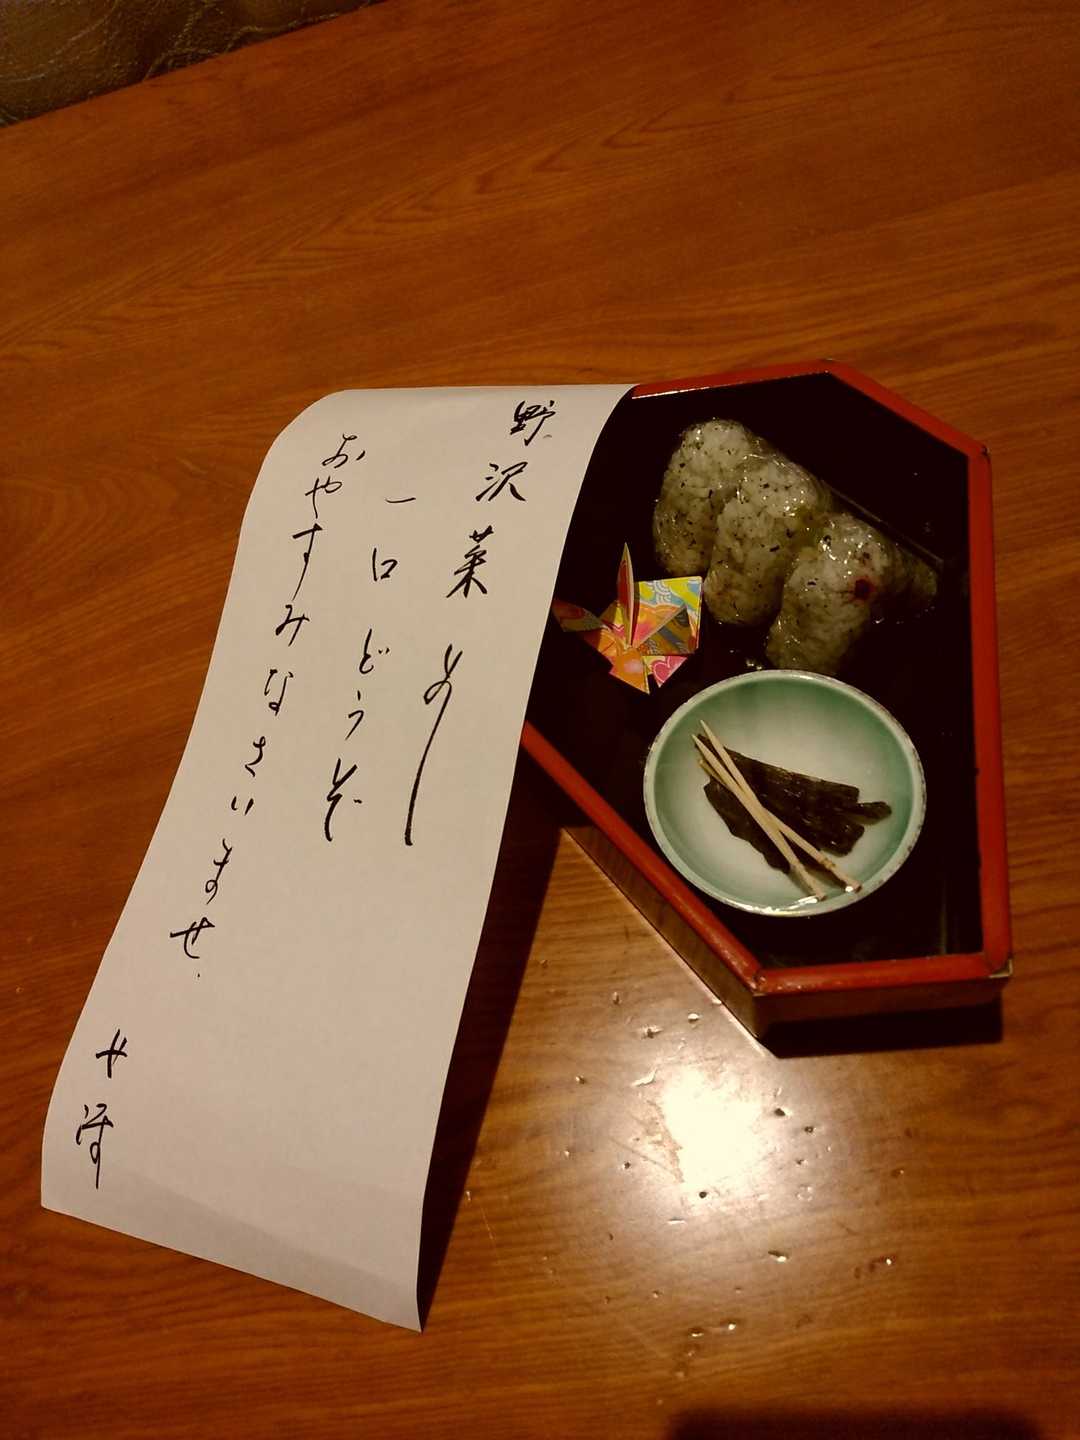 野沢菜めし
一口どうぞ
おやすみなさいませ.